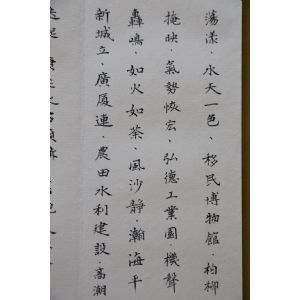 蕩漾．水天一色．移民博物館．柏柳
掩映．氣勢恢宏．弘德工業園．機聲
轟鳴．如火如荼．風沙靜．瀚海平
新城立．廣厦連．農田水利建設．高潮